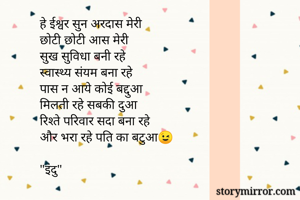 हे ईश्वर सुन अरदास मेरी
छोटी छोटी आस मेरी
सुख सुविधा बनी रहे
स्वास्थ्य संयम बना रहे
पास न आये कोई बद्दुआ
मिलती रहे सबकी दुआ
रिश्ते परिवार सदा बना रहे
और भरा रहे पति का बटुआ😉
"इंदु"
storymirror.com